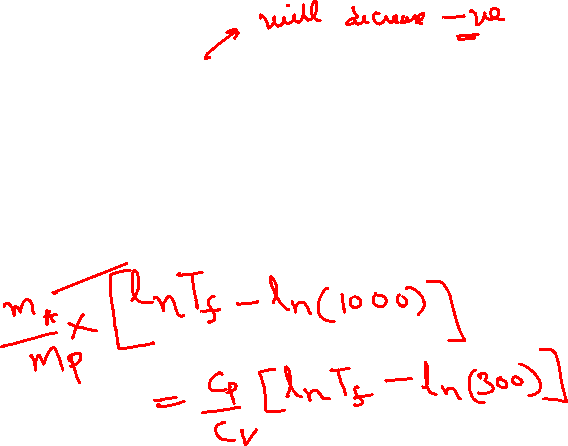 will decrease -ve
m_A/m_P × [ln T_f - ln(1000)]
= C_P/C_V [ln T_f - ln(300)]